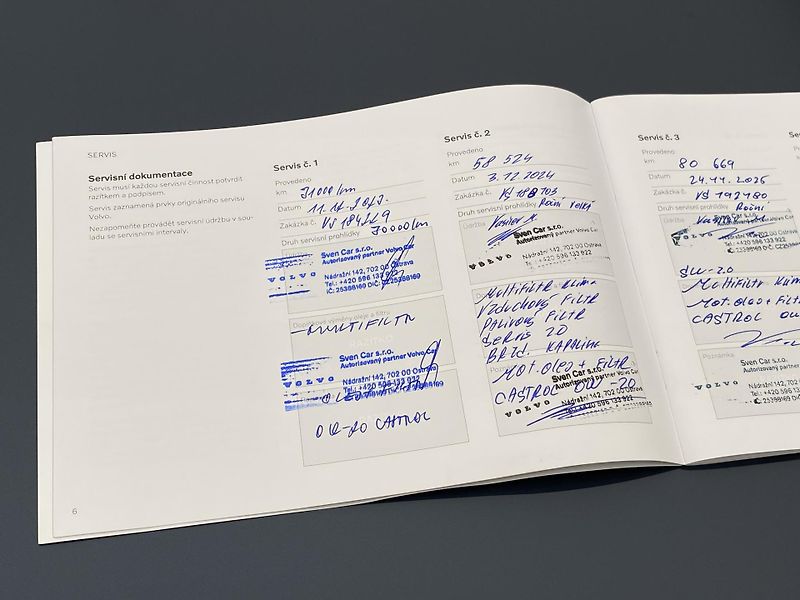 SERVIS
Servisní dokumentace
Servis musí každou servisní činnost potvrdit
razítkem a podpisem.
Servis zaznamená prvky originálního servisu
Volvo.
Nezapomeňte provádět servisní údržbu v sou-
ladu se servisními intervaly.
6
Servis č. 1
Provedeno
km 31000 km
Datum
Zakázka č.
Druh servisní prohlídky 30000 km
Sven Car s.r.o.
Autorizovaný partner Volvo Car
VOLVO
Nádražní 142, 702 00 Ostrava
Tel.: +420 596 133 922
IČ: 25388169 DIČ: CZ25388169
Doplňkové výměny oleje a filtru
MULTIFILTR
Sven Car s.r.o.
Autorizovaný partner Volvo Car
VOLVO
Nádražní 142, 702 00 Ostrava
Tel.: +420 596 133 922
OW-20 CASTROL
Servis č. 2
Provedeno
km 58 524
Datum 3.12.2024
Zakázka č. VS 188703
Druh servisní prohlídky Roční velký
Údržba
Sven Car s.r.o.
Autorizovaný partner Volvo Car
VOLVO
Nádražní 142, 702 00 Ostrava
Tel.: +420 596 133 922
Multifiltr klima
Vzduchový filtr
Palivový filtr
Servis 20
Brzd. kapalina
Mot.oleo + filtr
Sven Car s.r.o.
Autorizovaný partner Volvo Car
CASTROL OW-20
VOLVO
Nádražní 142, 702 00 Ostrava
Tel.: +420 596 133 922
Servis č. 3
Provedeno
km 80 669
Datum 24.11.2025
Zakázka č. VS 192180
Druh servisní prohlídky Roční
Údržba
Sven Car s.r.o.
Autorizovaný partner Volvo
Nádražní 142, 702 00
Tel.: +420 596 133
Multifiltr
Mot.oleo + Filt
CASTROL
Poznámka
Sven Car s.r.o.
Autorizovaný partner Volvo
VOLVO
Nádražní 142, 702 00
Tel.: +420 596 133